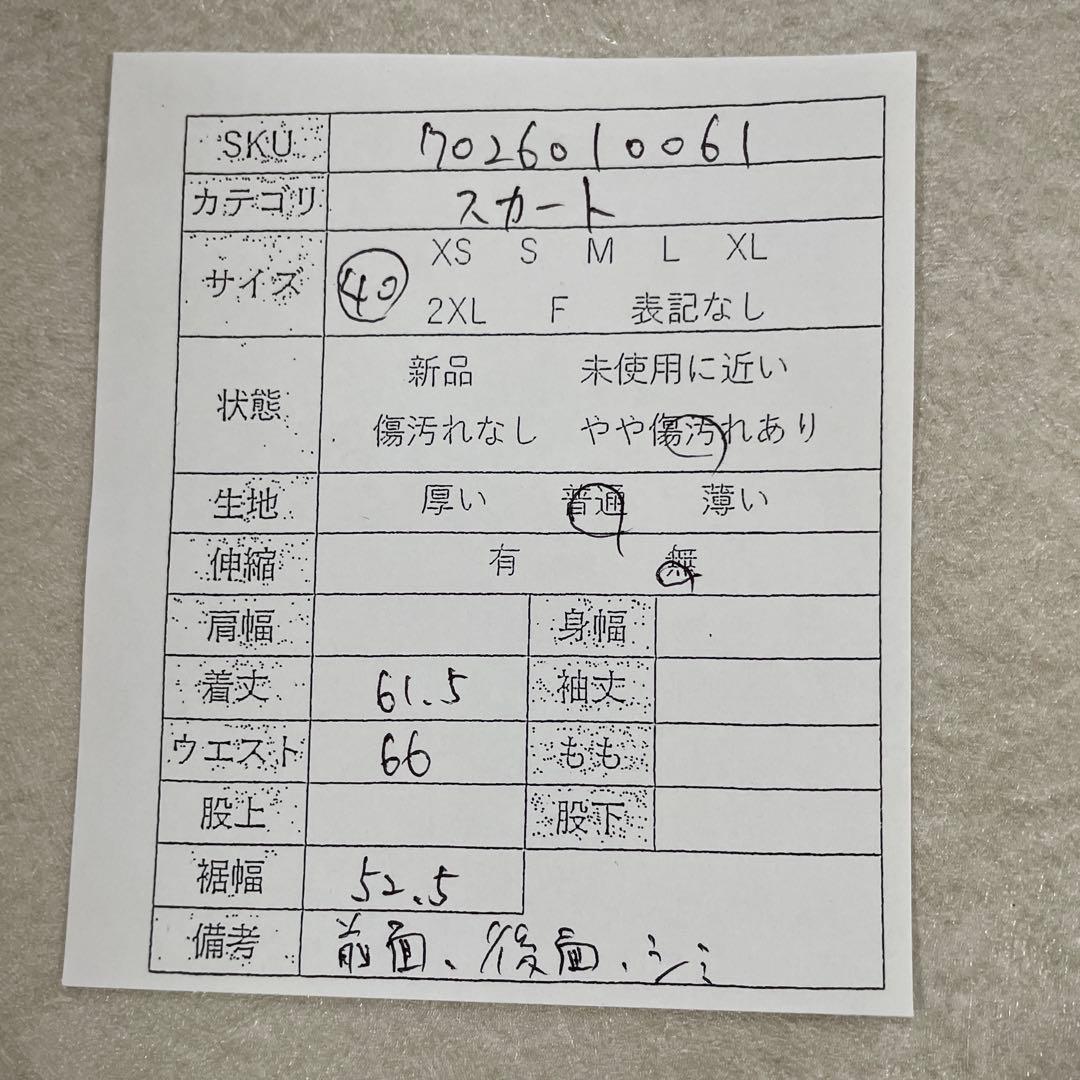 SKU 7026010061
カテゴリ スカート
サイズ 40 XS S M L XL
2XL F 表記なし
状態 新品 未使用に近い
傷汚れなし やや傷汚れあり
生地 厚い 普通 薄い
伸縮 有 無
肩幅 身幅
着丈 61.5 袖丈
ウエスト 66 もも
股上 股下
裾幅 52.5
備考 前面、後面、シミ